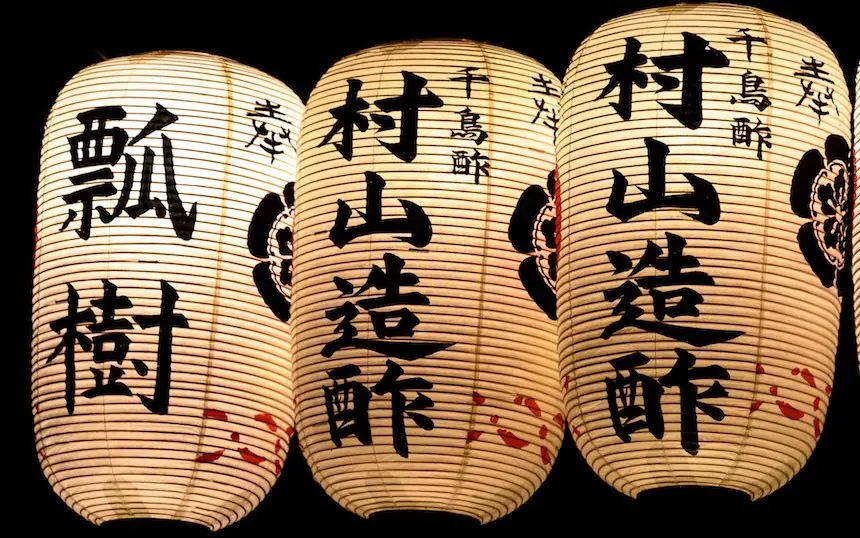 奉
千鳥酢
村山造酢
奉
千鳥酢
村山造酢
奉
瓢樹